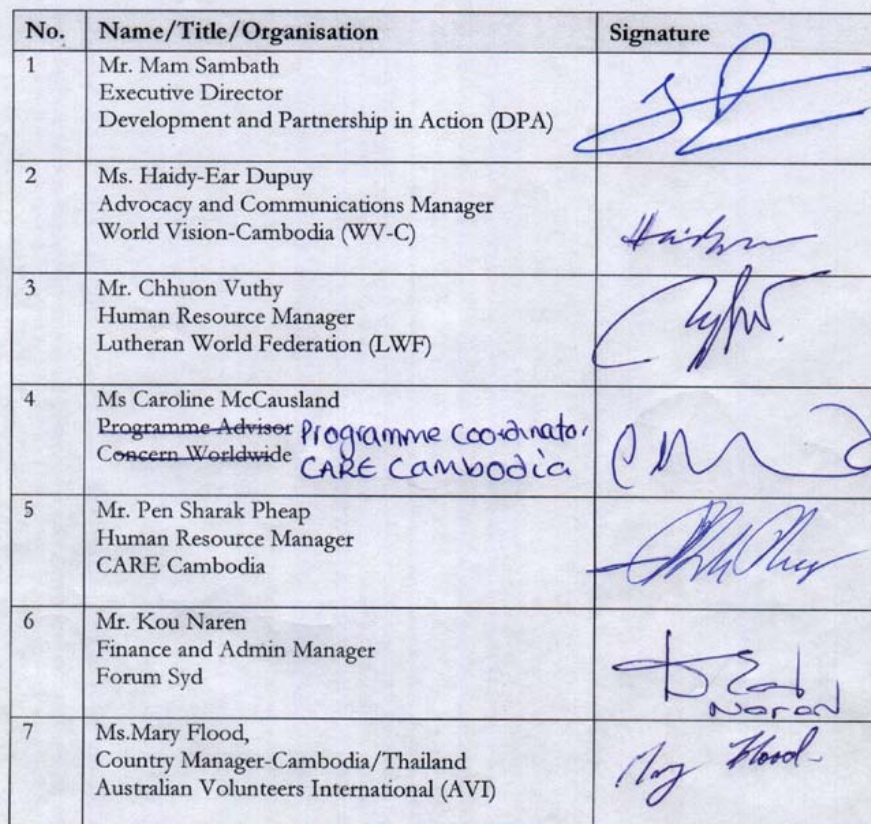 No. Name/Title/Organisation Signature
1 Mr. Mam Sambath
Executive Director
Development and Partnership in Action (DPA)
2 Ms. Haidy-Ear Dupuy
Advocacy and Communications Manager
World Vision-Cambodia (WV-C)
3 Mr. Chhuon Vuthy
Human Resource Manager
Lutheran World Federation (LWF)
4 Ms Caroline McCausland
Programme Advisor Programme Coordinator
Concern Worldwide CARE Cambodia
5 Mr. Pen Sharak Pheap
Human Resource Manager
CARE Cambodia
6 Mr. Kou Naren
Finance and Admin Manager
Forum Syd
Naren
7 Ms.Mary Flood,
Country Manager-Cambodia/Thailand Mary Flood
Australian Volunteers International (AVI)